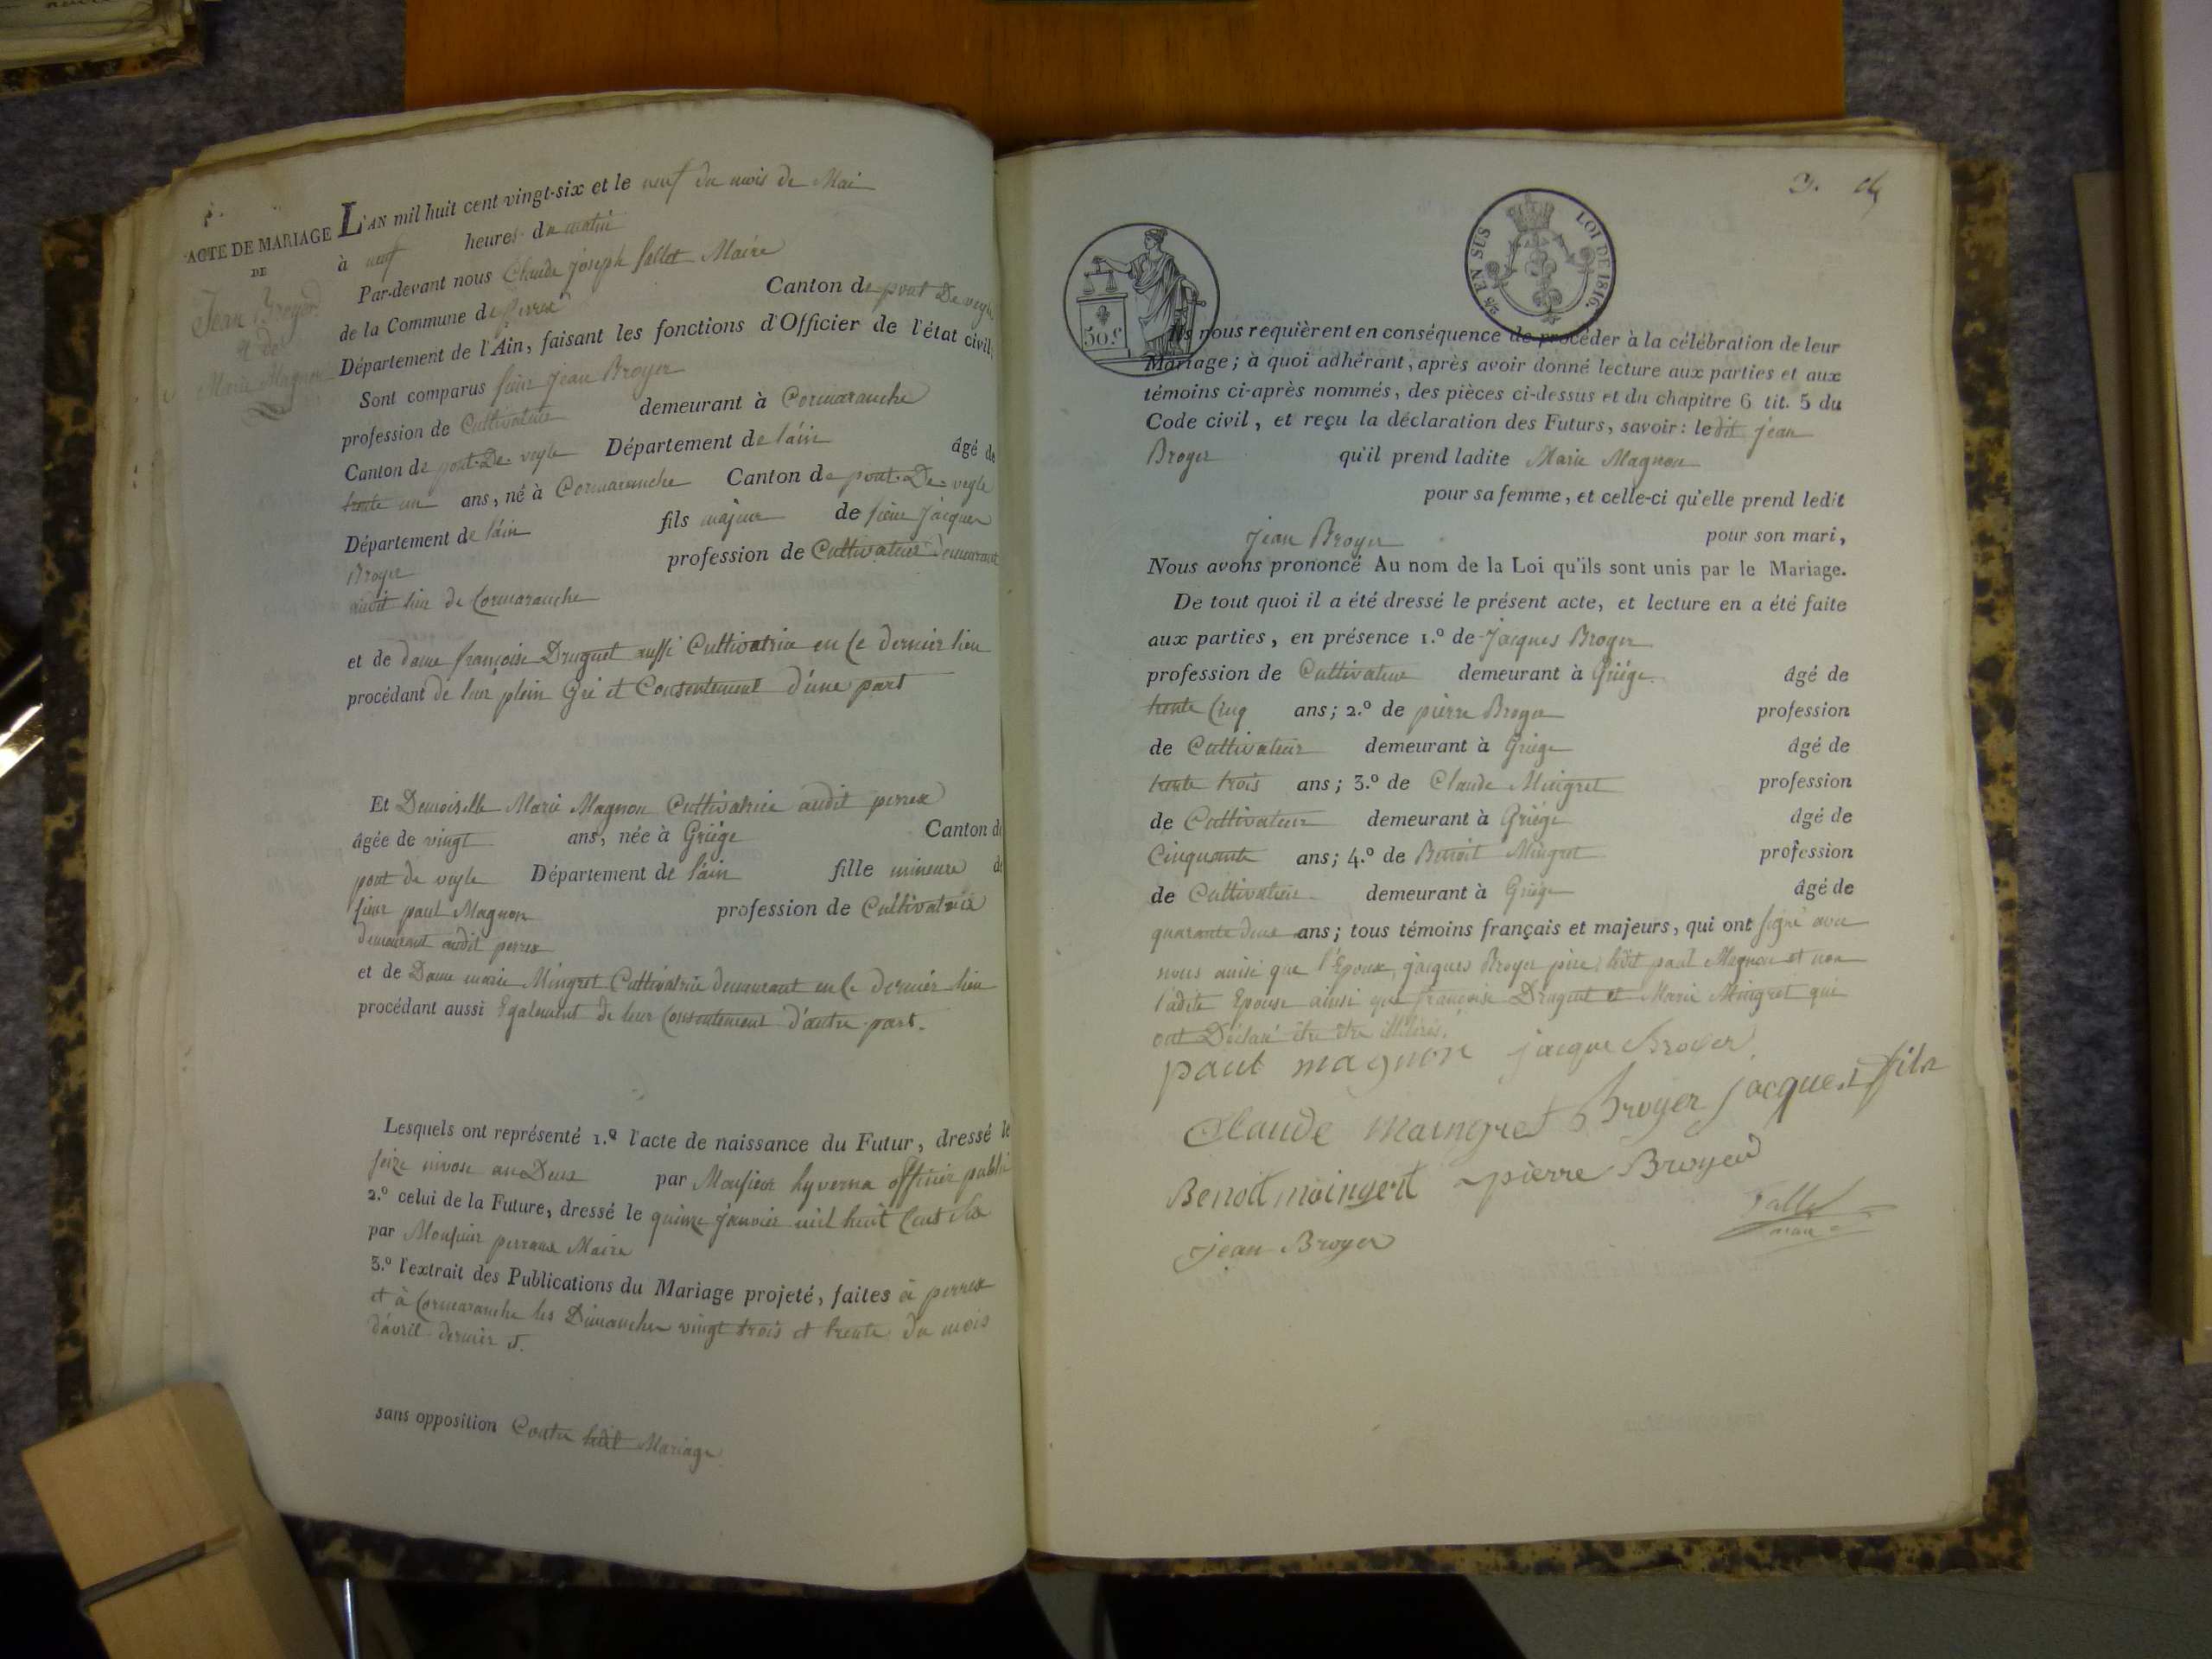 ACTE DE MARIAGE
DE
Jean Broyer
et de
Marie Magnon
L'AN mil huit cent vingt-six et le neuf du mois de Mai
à neuf heures du matin
Par-devant nous Claude joseph fallet Maire
de la Commune de perrex Canton de pont De veyle
Département de l'Ain, faisant les fonctions d'Officier de l'état civil,
Sont comparus sieur jean Broyer
profession de Cultivateur demeurant à Cormaranche
Canton de pont-De-veyle Département de l'ain âgé de
trente un ans, né à Cormaranche Canton de pont-De-veyle
Département de l'ain fils majeur de sieur jacques
Broyer profession de Cultivateur demeurant
audit lieu de Cormaranche
et de dame françoise Druguet aussi Cultivatrice en ce dernier lieu
procédant de leur plein Gré et Consentement d'une part
Et Demoiselle Marie Magnon Cultivatrice audit perrex
âgée de vingt ans, née à Griége Canton de
pont de veyle Département de l'ain fille mineure de
sieur paul Magnon profession de Cultivateur
demeurant audit perrex
et de Dame marie Mingret Cultivatrice demeurant en ce dernier lieu
procédant aussi Egalement de leur Consentement d'autre part.
Lesquels ont représenté 1.º l'acte de naissance du Futur, dressé le
seize nivose an Deux par Monsieur hyverna officier public
2.º celui de la Future, dressé le quinze janvier mil huit Cent Six
par Monsieur perraux Maire
3.º l'extrait des Publications du Mariage projeté, faites à perrex
et à Cormaranche les Dimanches vingt trois et trente du mois
d'avril dernier
sans opposition Contre ledit Mariage
3.
50.c
25 EN SUS LOI DE 1816.
Ils nous requièrent en conséquence de procéder à la célébration de leur
Mariage; à quoi adhérant, après avoir donné lecture aux parties et aux
témoins ci-après nommés, des pièces ci-dessus et du chapitre 6 tit. 5 du
Code civil, et reçu la déclaration des Futurs, savoir: ledit jean
Broyer qu'il prend ladite Marie Magnon
pour sa femme, et celle-ci qu'elle prend ledit
jean Broyer pour son mari,
Nous avons prononcé Au nom de la Loi qu'ils sont unis par le Mariage.
De tout quoi il a été dressé le présent acte, et lecture en a été faite
aux parties, en présence 1.º de jacques Broyer
profession de Cultivateur demeurant à Griége âgé de
trente Cinq ans; 2.º de pierre Broyer profession
de Cultivateur demeurant à Griége âgé de
trente trois ans; 3.º de Claude Mingret profession
de Cultivateur demeurant à Griége âgé de
Cinquante ans; 4.º de Benoit Mingret profession
de Cultivateur demeurant à Griége âgé de
quarante deux ans; tous témoins français et majeurs, qui ont signé avec
nous ainsi que l'Epoux, jacques Broyer père, ledit paul Magnon et non
l'adite Epouse ainsi que françoise Druguet et Marie Mingret qui
ont Déclaré être être illitérés.
paul magnon jacque Broyer
Claude maingret Broyer jacques fils
Benoit maingert pierre Broyer
Jean Broyer fallet
maire